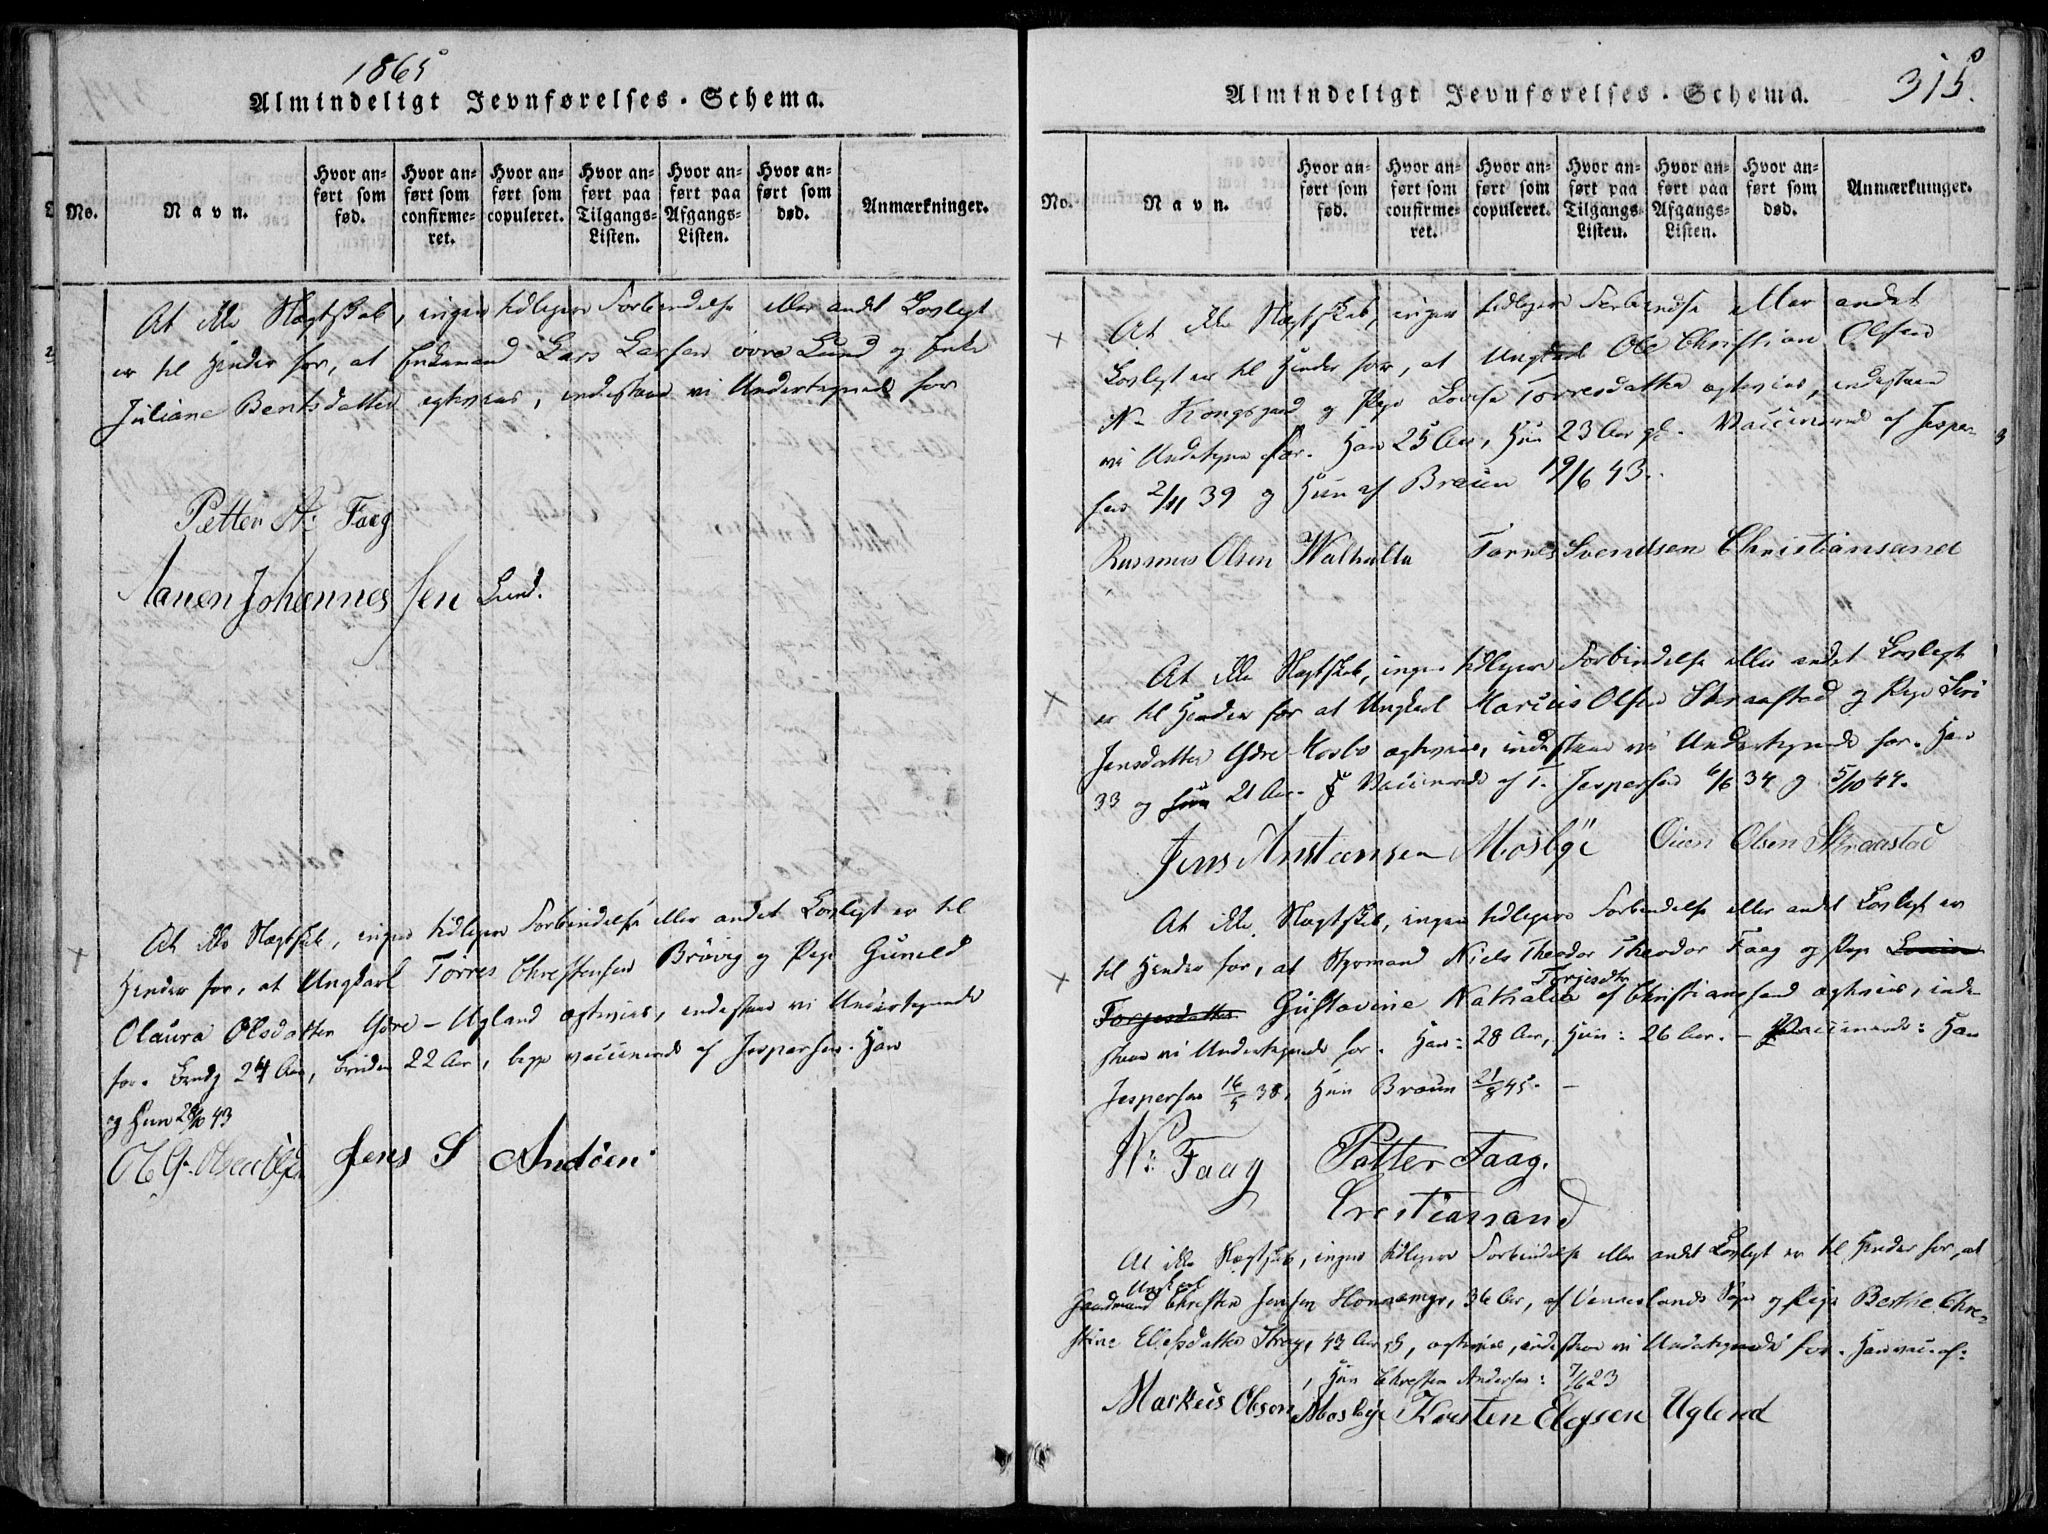 1865
Almindeligt Jevnførelses-Schema.
No.
Navn.
Hvor anført som fød.
Hvor anført som confirmeret.
Hvor anført som copuleret.
Hvor anført paa Tilgangs-Listen.
Hvor anført paa Afgangs-Listen.
Hvor anført som død.
Anmærkninger.
At ikke Slægtskab, ingen tidligere Forbindelse eller andet Lovligt
er til Hinder for, at Enkemand Lars Larsen øvre Lund og Enke
Juliane Bentsdatter egtevies, indestaae vi Undertegnede for
Petter N: Faag
Aanen Johannessen Lund.
At ikke Slægtskab, ingen tidligere Forbindelse eller andet Lovligt er til
Hinder for, at Ungkarl Torres Chrestensen Brøvig og Pige Gunild
Olaura Olsdatter Ydre-Ugland egtevies, indestaae vi Undertegnede
for. Brudg 24 Aar, Bruden 22 Aar, begge vaccinerede af Jespersen. Han
og Hun 28/10 43
Jens S Andöen
315.
Almindeligt Jevnførelses-Schema.
No.
Navn.
Hvor anført som fød.
Hvor anført som confirmeret.
Hvor anført som copuleret.
Hvor anført paa Tilgangs-Listen.
Hvor anført paa Afgangs-Listen.
Hvor anført som død.
Anmærkninger.
At ikke Slægtskab, ingen tidligere Forbindelse eller andet
Lovligt er til Hinder for, at Ungkarl Ole Christian Olsen
N. Kongsgaard og Pige Lovise Torresdatter egtevies, indestaae
vi Undertegn for. Han 25 Aar, Hun 23 Aar gl. Vaccinered af Jesper-
sen 2/11 39 og Hun af Braun 19/6 43.
Rasmus Olsen Walhalla Tørres Svendsen Christiansand
At ikke Slægtskab, ingen tidligere Forbindelse eller andet Lovligt
er til Hinder for at Ungkarl Marcus Olsen Straastad og Pige Siri
Jensdatter Ydre Mosby egtevies, indestaae vi Undertegnede for. Han
33 og Hun 21 Aar. Vaccinerede af T. Jespersen 6/6 34 og 5/10 44.
Jens Anstensen Mosbye Oien Olsen Straastad
At ikke Slægtskab, ingen tidligere Forbindelse eller andet Lovligt er
til Hinder for, at Styrmand Niels Theodor Theodor Faag og Pige Lovise
Torjesdtr
Torjesdatter Gustavine Nathalia af Christianssand egtevies, inde
staae vi Undertegnede for. Han: 28 Aar, Hun: 26 Aar. - Vaccinerede: Han
Jespersen 16/5 38, Hun Braun 21/8 45. -
N: Faag Petter Faag.
Crestiansand
At ikke Slægtskab, ingen tidligere Forbindelse eller andet Lovligt er til Hinder for, at
Ungkarl
Gaardmand Chresten Jensen Honnemyr, 36 Aar, af Vennesland Sogn og Pige Berthe Chre-
stine Eliesdatter Stray, 42 Aar gl, egtevies, indestaae vi Undertegnede for. Han vac. af:
, Hun Chresten Andersen: 7/6 23
Markus Olsen Mosbye Kresten Elefsen Uglend